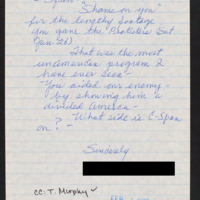 "Shame on you"
for the lengthy footage
you gave the Protesters Sat
Jan 26)
That was the most
unamerican program I
have ever seen -
You aided our enemy
by showing him a
divided America -
What side is C-Span
on? -
Sincerely
cc: T. Murphy ✓
FEB